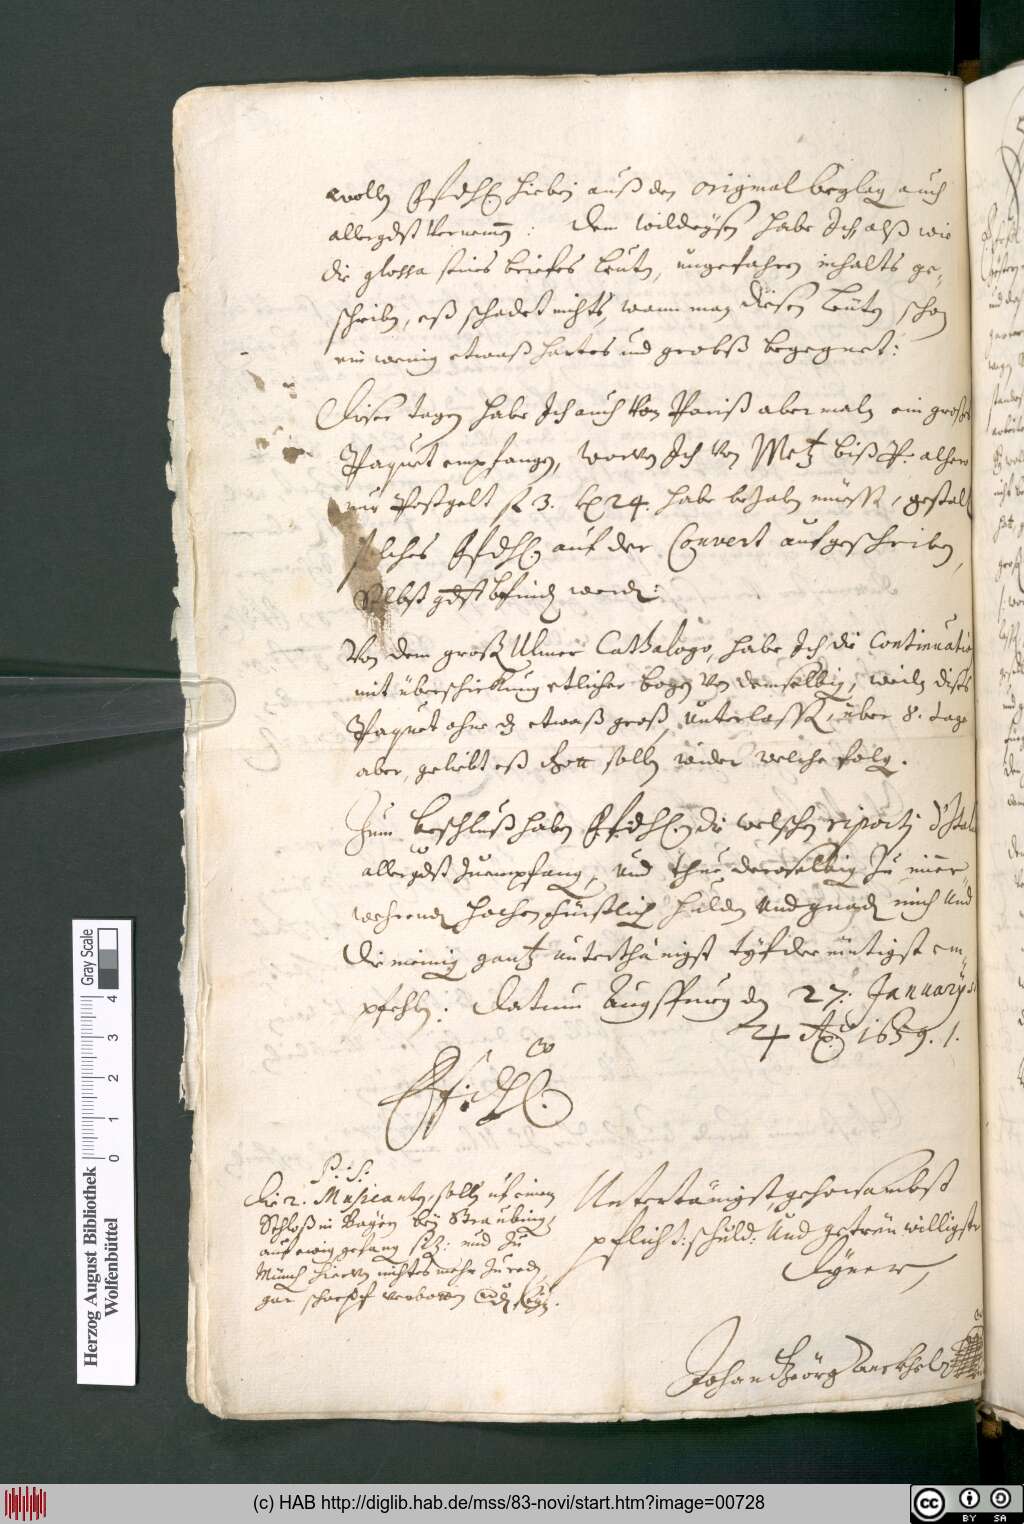 wollen EfdHl. hiebei auß dem original beylag auch
allergdst vernemen: Dem wildeysen habe Ich alß wie
die glossa seines briefes leuten, ungefahren inhalts ge-
schriben, eß schadet nichts, wann man diesen leüten schon
ein wenig etwaß hartes und grobß begegnet:
Diser tagen habe Ich auch von Pariß abermaln ein großes
Paquet empfangen, worvon Ich von Metz biß alhero
nur Postgelt fl 3. xr 24. habe bezalen müessen, gestalt
solches EfdHl. auf der Convert aufgeschriben,
Selbst gdst befinden werden:
Von dem großen Ulmer Cathalogo, habe Ich die Continuation
mit überschickung etlicher bogen von demselbigen, weiln dises
Paquet ohne dz etwaß groß, unterlassen, über 8. tage
aber, geliebt eß Gott sollen wider welche folgen.
Zum beschluß haben EfdHl. die welschen riporti d'Italia
allergdst zuempfangen, und thue deroselbigen zu immer-
wehrenden hochen fürstlichen hulden und gnaden mich und
die meinig gantz unterthänigst tyf demütigst em-
pfehlen: Datum Augspurg den 27. January
4 Aō: 1659.
EfdHl.
P: S:
Die 2. Musicanten, sollen uf einem
Schloß in Bayern bey Straubing
auf ewig gefang sitzen: und zu
Münch hiervon nichtes mehr zu reden
gar scharpf verbotten
Untertänigst, gehorsambst
pflicht: schuld: und getreu willigster
Dyener,
Johan Georg Anckhel
Herzog August Bibliothek
Wolfenbüttel
0 1 2 3 4 Gray Scale
(c) HAB http://diglib.hab.de/mss/83-novi/start.htm?image=00728
cc BY SA